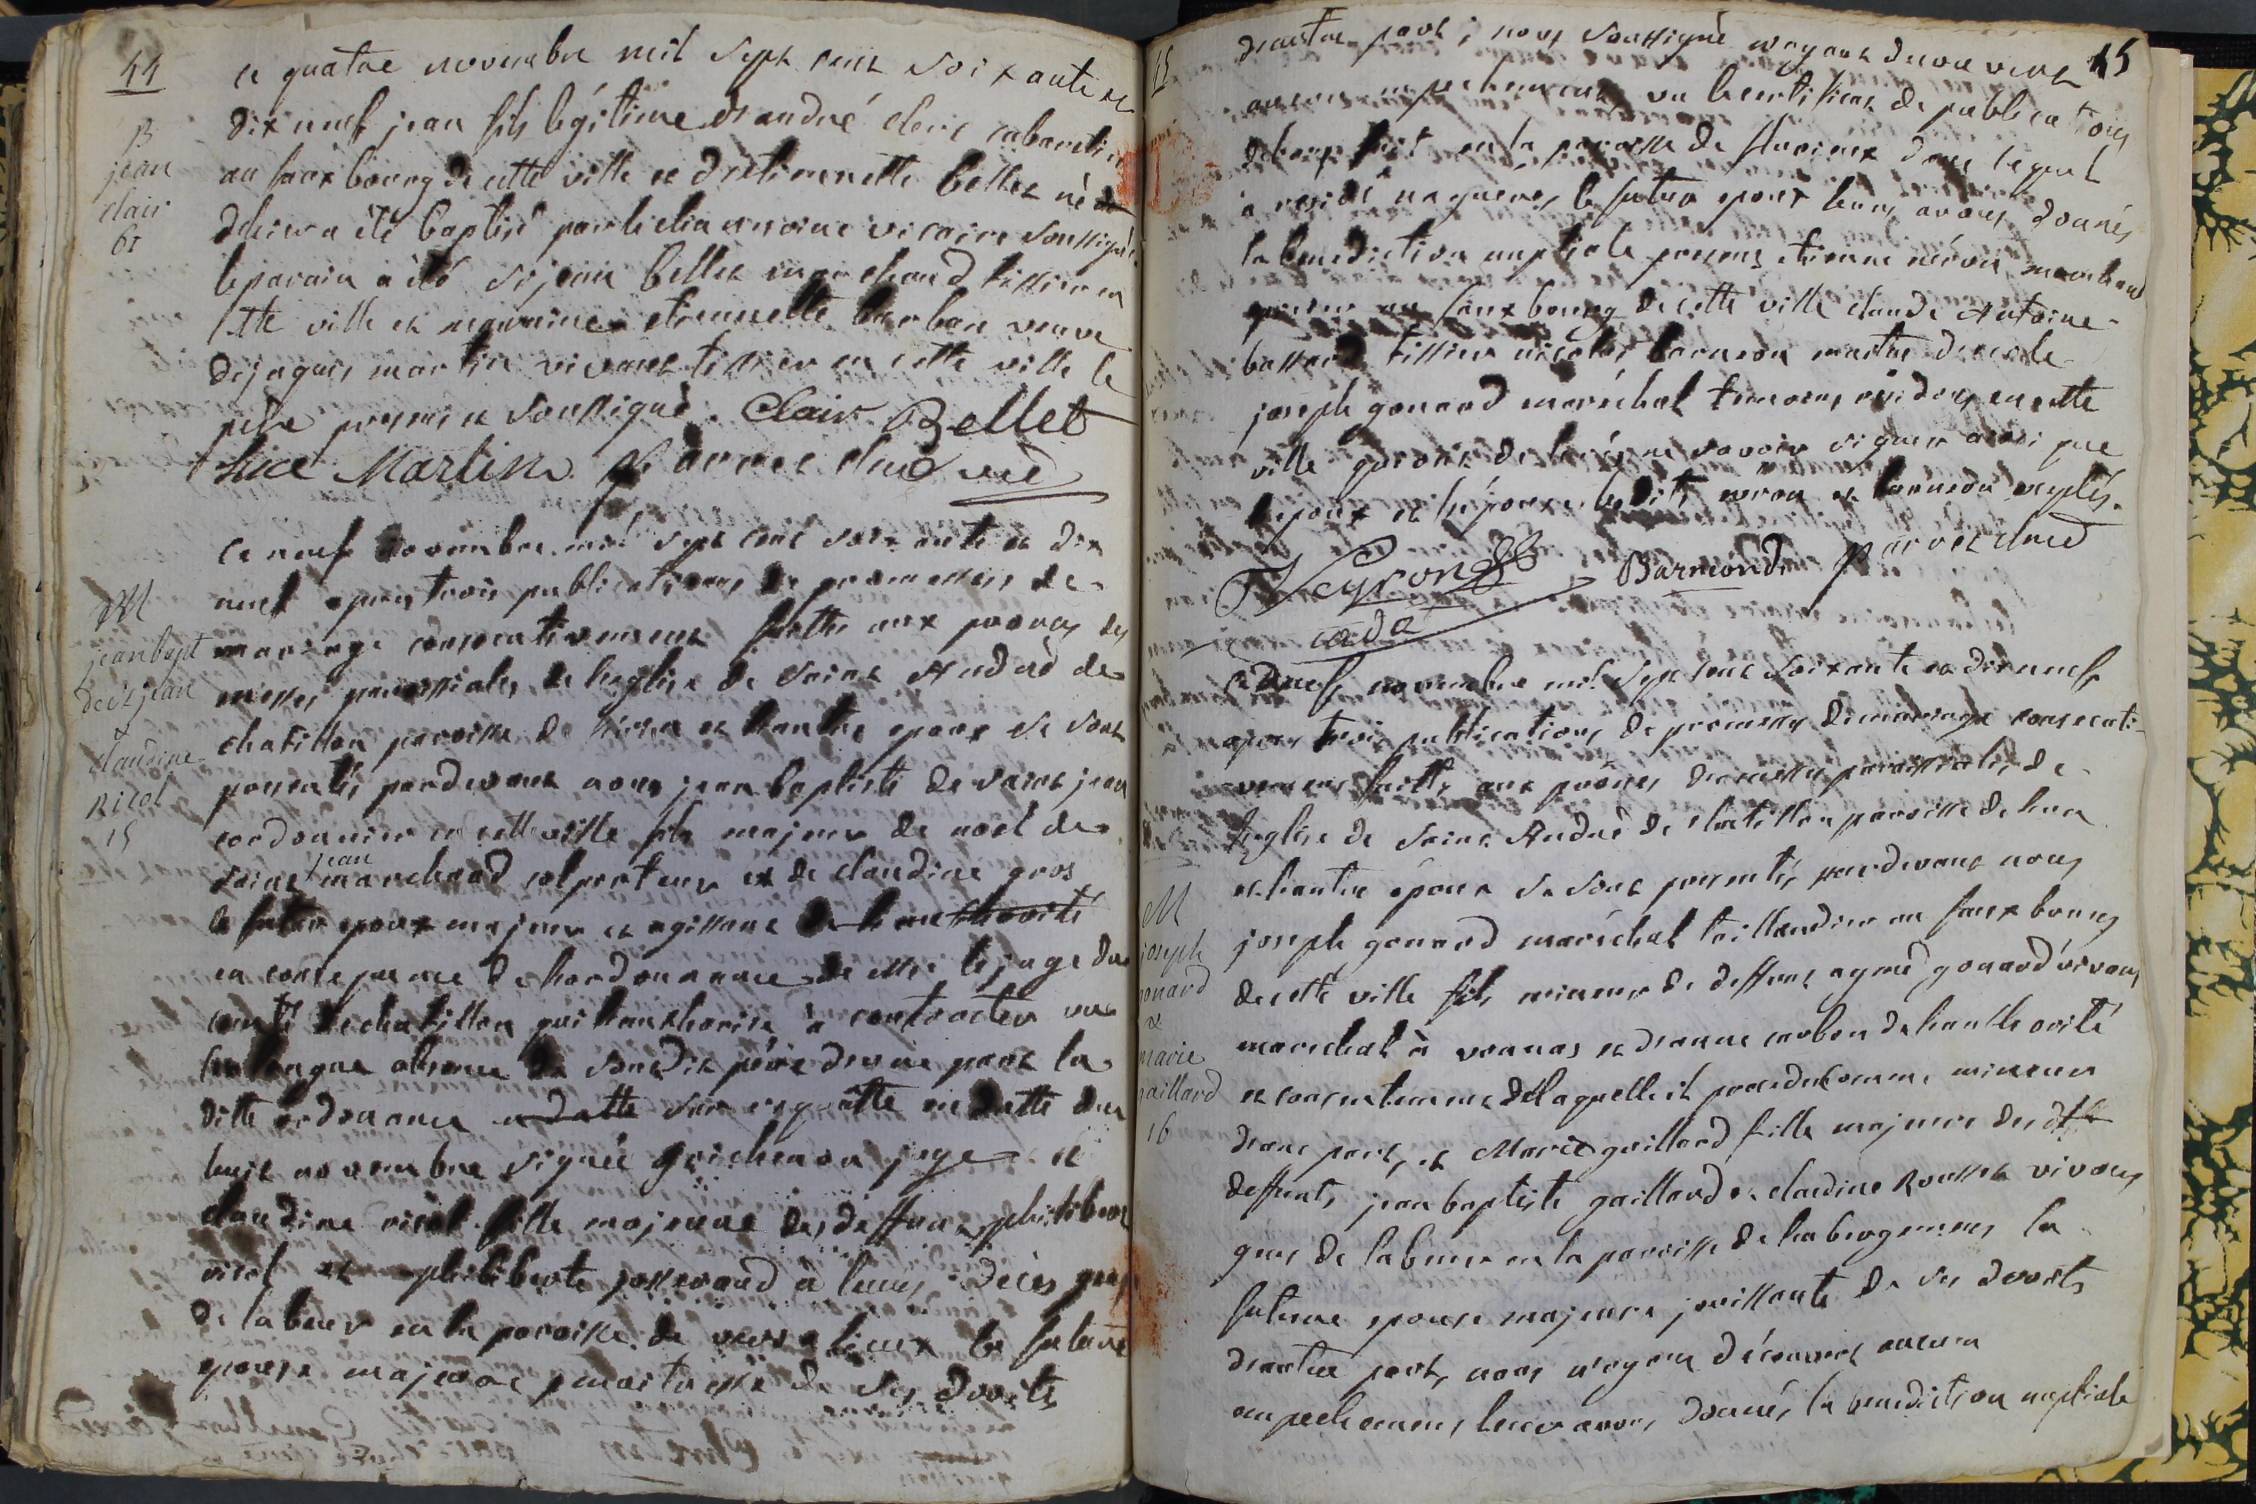 44
B
jean
clair
61
ce quatre novembre mil sept cent soixante et
dix neuf jean fils légitime de andré clerc cabaretier
au faux bourg de cette ville et d'etiennette bellet né
d'hier a été baptisé par le vicaire soussigné
le parain a été sr jean bellet marchand tissier en
cette ville et maraine etiennette barbon veuve
de jaques martin vivant tissier en cette ville le
père present et soussigné. Clair Bellet
Martin
M
jean bapt
de st jean
claudine
Ricol
15
ce neuf novembre mil sept cent soixante et dix
neuf apres trois publications de promesses de
mariage consecutivement faittes aux prones des
messes paroissiales de l'eglise de Saint André de
chatillon paroisse de et l'autre epoux se sont
presentés pardevant nous jean baptiste de saint jean
cordonnier en cette ville fils majeur de noel de
saint jean marchand colporteur et de claudine gros
le futur epoux majeur et agissant de l'authorité
en consequence de l'hordonnance de Mr le juge du
comté de chatillon qui l'authorise à contracter vu
la longue absence de son dit père d'une part la
ditte ordonance en datte sur requette en datte du
huit novembre signée juge et
claudine ricol fille majeure des deffunts philibert
ricol et philiberte josserand à leurs décès gens
de labeur en la paroisse de versalieux la future
epouse majeure jouissante de ses droits
15
45
d'autre part, nous soussigné n'ayant decouvert
aucun empechement, vu le certificat de publications
de bans fait en la paroisse de dans lequel
a residé nagueres le futur epoux leurs avons donnés
la benediction nuptiale presens etienne néron marchand
au faux bourg de cette ville claude Antoine
bassard tissier nicolas barmon maitre d'ecole
joseph gonard maréchal temoins residens en cette
ville qui ont declaré ne savoir signer ainsi que
l'epoux et l'épouse lesdits néron et barmon exceptés.
Neyron Barmond
M
joseph
gonard
&
marie
gaillard
16
ce neuf novembre mil sept cent soixante et dix neuf
apres trois publications de promesses de mariage consecuti-
vement faittes aux prônes des messes paroissiales de
l'eglise de Saint André de chatillon paroisse de l'un
et l'autre époux se sont presentés pardevant nous
joseph gonard maréchal taillandier au faux bourg
de cette ville fils mineur de deffunt aymé gonard vivant
marechal à vonnas et d'anne carbon de l'authorité
et consentement de laquelle il procede comme mineur
d'une part, et Marie gaillard fille majeure des
deffunts jean baptiste gaillard et claudine Rousset vivans
gens de labeur en la paroisse de l'abergement la
future epouse majeure jouissante de ses droits
d'autre part, nous n'ayant découvert aucun
empechement leurs avons donnés la benediction nuptiale